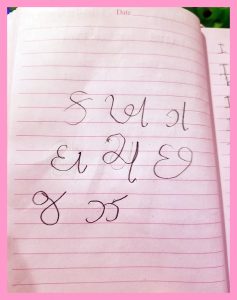 Date
ક ખ ગ
ઘ ચ છ
જ ઝ